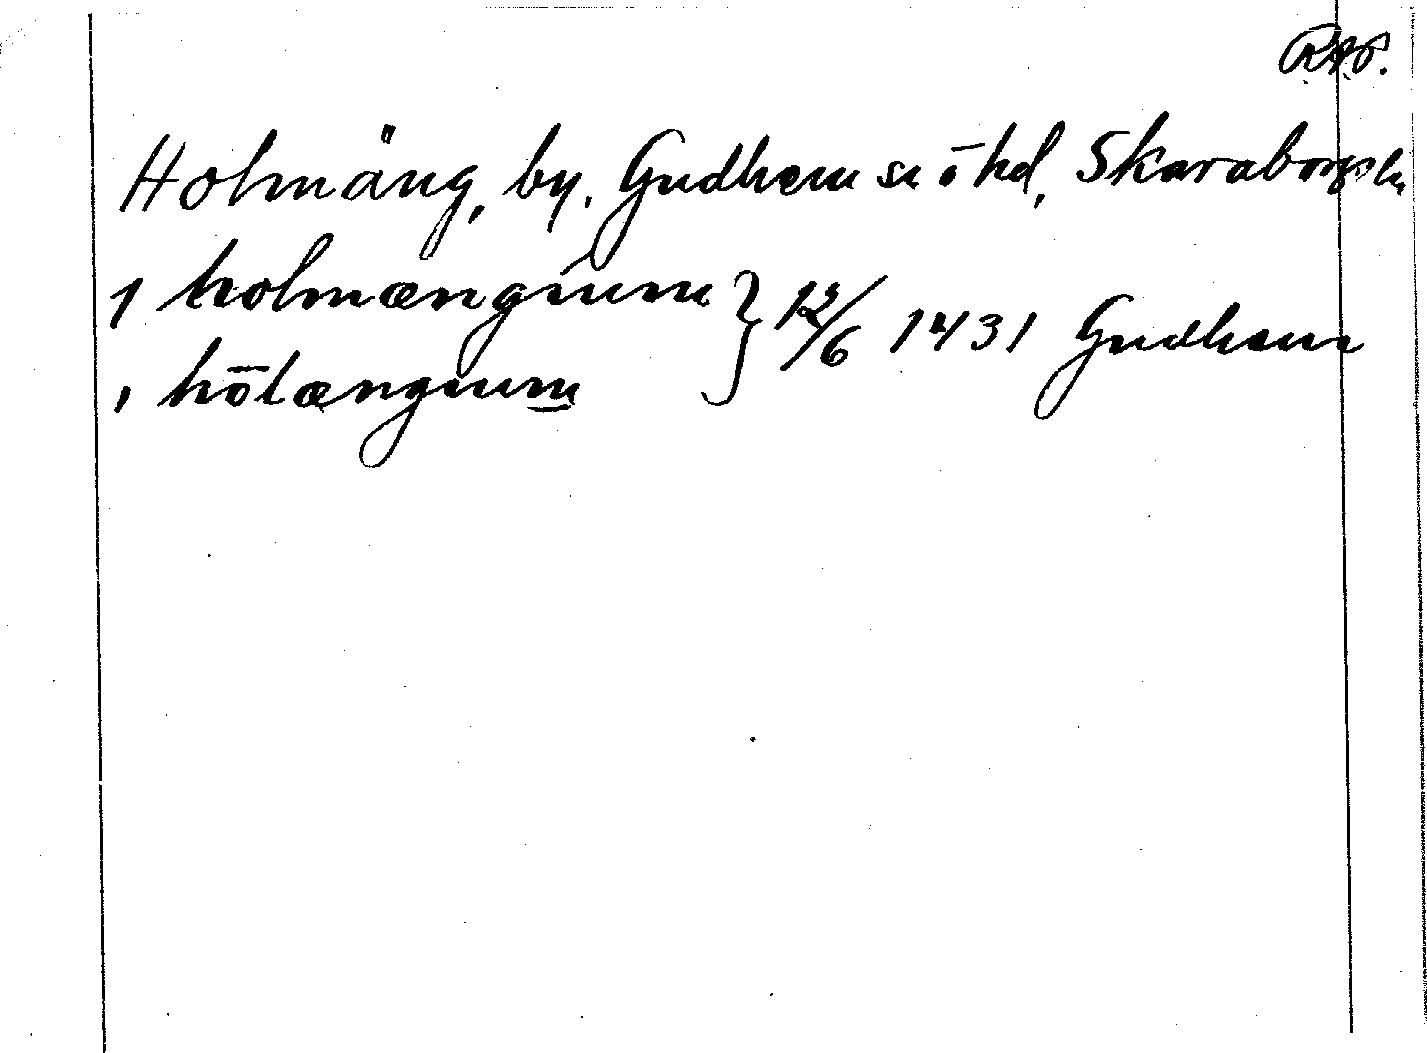 RAP.
Holmäng, by. Gudhem sn ō hd, Skaraborgs ln
1 holmængium } 12/6 1431 Gudhem
, hōlængium